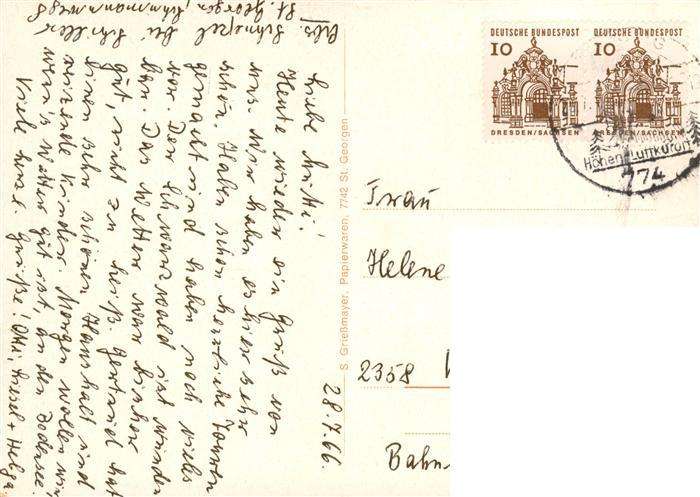 Abs. Schnepel bei Schiller
St. Georgen,
28.7.66
Liebe Mutti!
Heute wieder ein Gruß von
uns. Wir haben es hier sehr
schön. Haben schon herrliche Touren
gemacht und haben noch vieles
vor. Der Schwarzwald ist wunder
bar. Das Wetter war bisher
gut, nicht zu heiß. Gertrud hat
einen sehr schönen Haushalt und
reizende Kinder. Morgen wollen wir,
wenn's Wetter gut ist, an den Bodensee.
Viele herzl. Grüße! Otti, + Helga
S. Grießmayer, Papierwaren, 7742 St. Georgen
DEUTSCHE BUNDESPOST
10
DRESDEN/SACHSEN
DEUTSCHE BUNDESPOST
10
DRESDEN/SACHSEN
Höhen-Luftkuror
774
Frau
Helene
2358
Bahn-